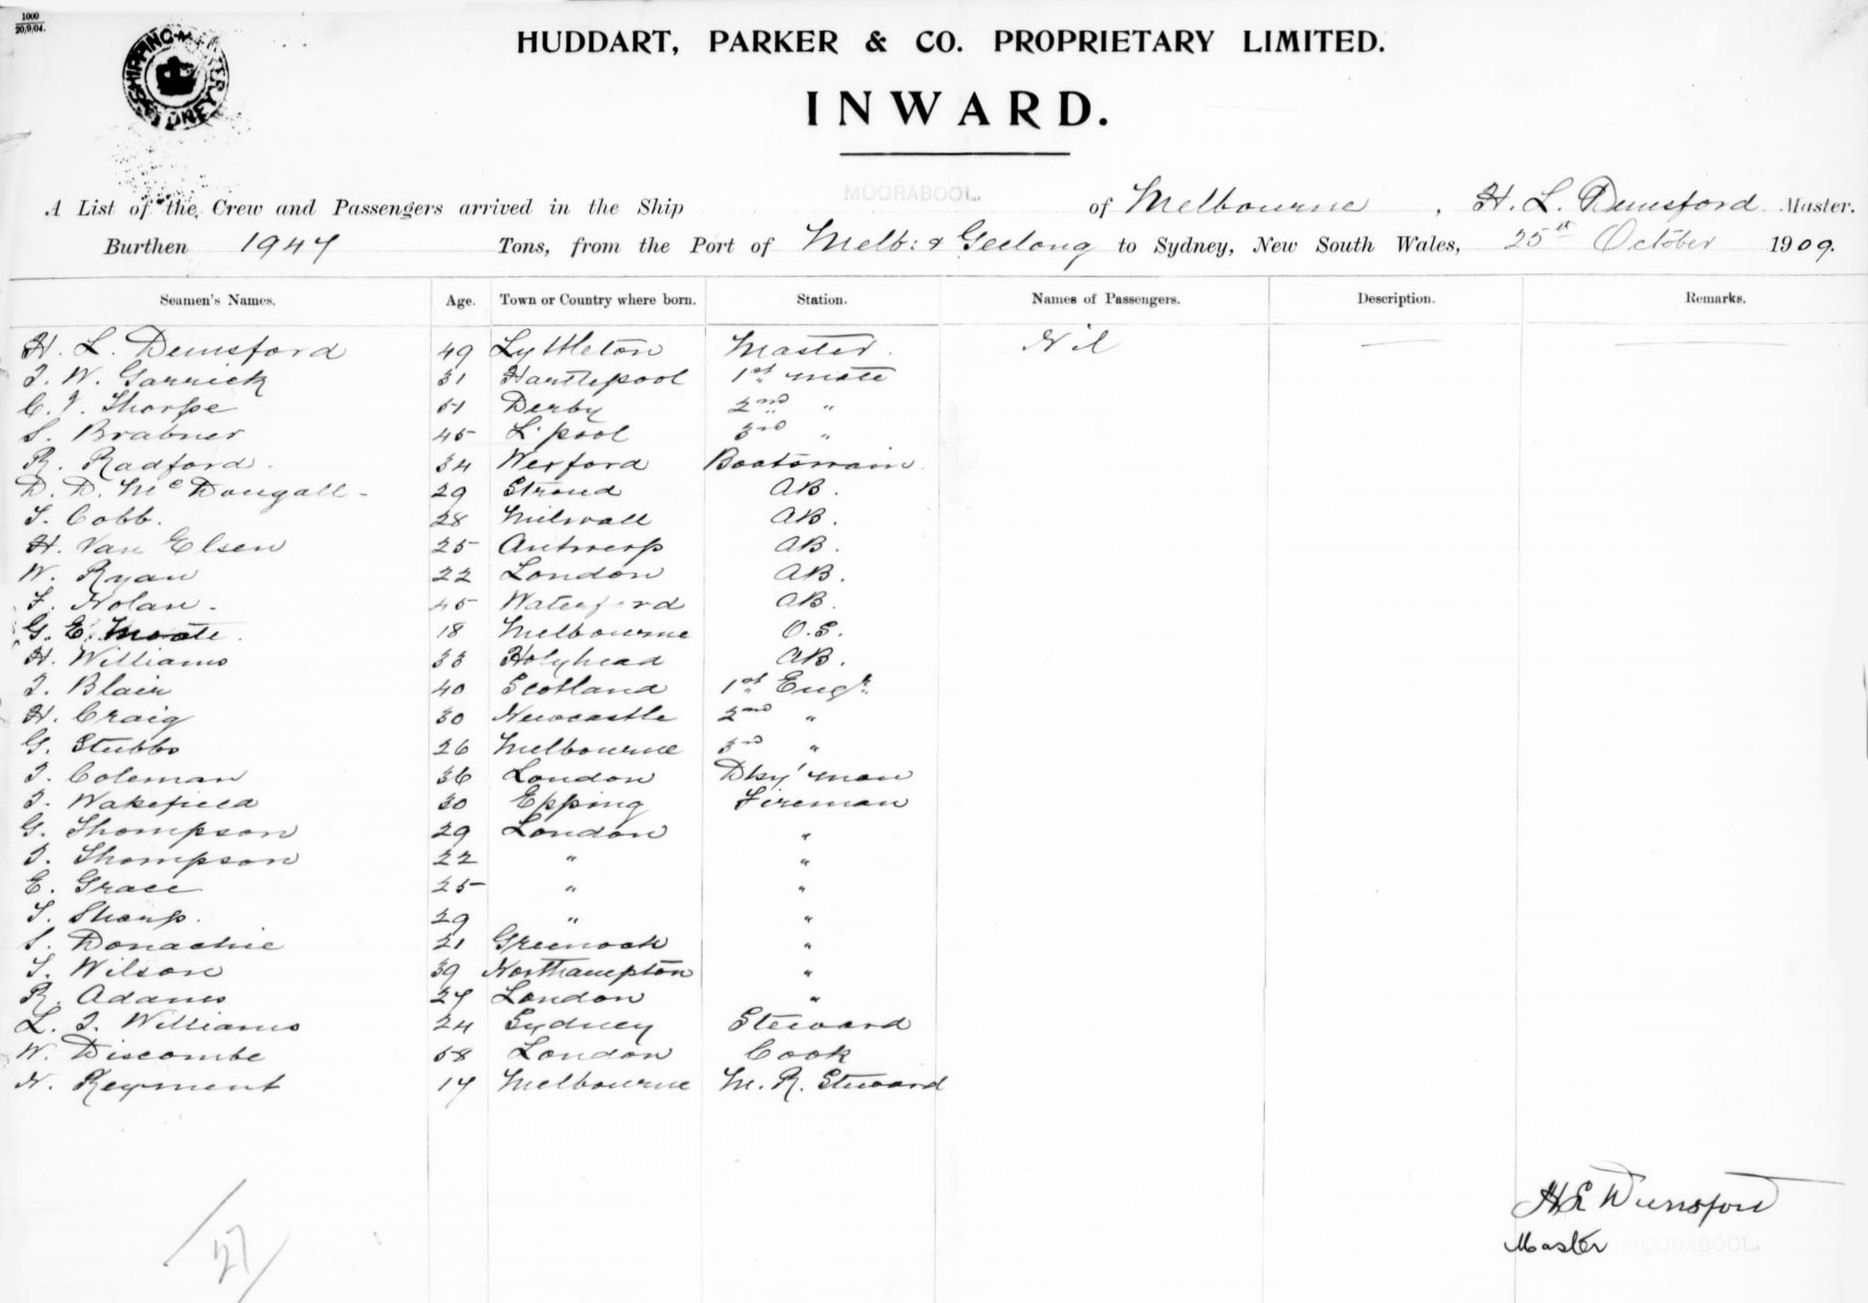 1000
20/9/04.
SHIPPING MASTER SYDNEY
HUDDART, PARKER & CO. PROPRIETARY LIMITED.
INWARD.
A List of the Crew and Passengers arrived in the Ship MOORABOOL. of Melbourne, H. L. Dunsford Master.
Burthen 1947 Tons, from the Port of Melb: & Geelong to Sydney, New South Wales, 25th October 1909.
Seamen's Names. Age. Town or Country where born. Station. Names of Passengers. Description. Remarks.
H. L. Dunsford 49 Lyttleton Master. Nil — —
J. W. Garrick 31 Hartlepool 1st mate
C. V. Thorpe 51 Derby 2nd "
S. Brabner 45 L'pool 3rd "
R. Radford. 34 Wexford Boatswain.
D. D. McDougall - 29 Stroud AB.
T. Cobb. 28 Milwall AB.
H. Van Elsen 25 Antwerp AB.
W. Ryan 22 London AB.
F. Nolan - 45 Waterford AB.
G. E. Moate. 18 Melbourne O.S.
H. Williams 33 Holyhead AB.
J. Blair 40 Scotland 1st Engr.
H. Craig 30 Newcastle 2nd "
G. Stubbs 26 Melbourne 3rd "
J. Coleman 36 London Dky'man
J. Wakefield 30 Epping Fireman
G. Thompson 29 London "
J. Thompson 22 " "
E. Grace 25 " "
T. Sharp. 29 " "
S. Donachie 21 Greenock "
T. Wilson 39 Northampton "
R. Adams 27 London "
L. J. Williams 24 Sydney Steward
W. Discombe 58 London Cook
N. Reyment 17 Melbourne M. R. Steward
27
H L Dunsford
Master MOORABOOL.